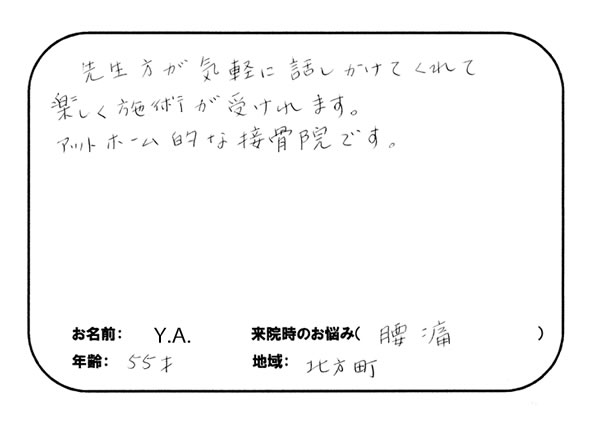 先生方が気軽に話しかけてくれて
楽しく施術が受けれます。
アットホーム的な接骨院です。
お名前： Y.A. 来院時のお悩み( 腰痛 )
年齢： 55才 地域： 北方町